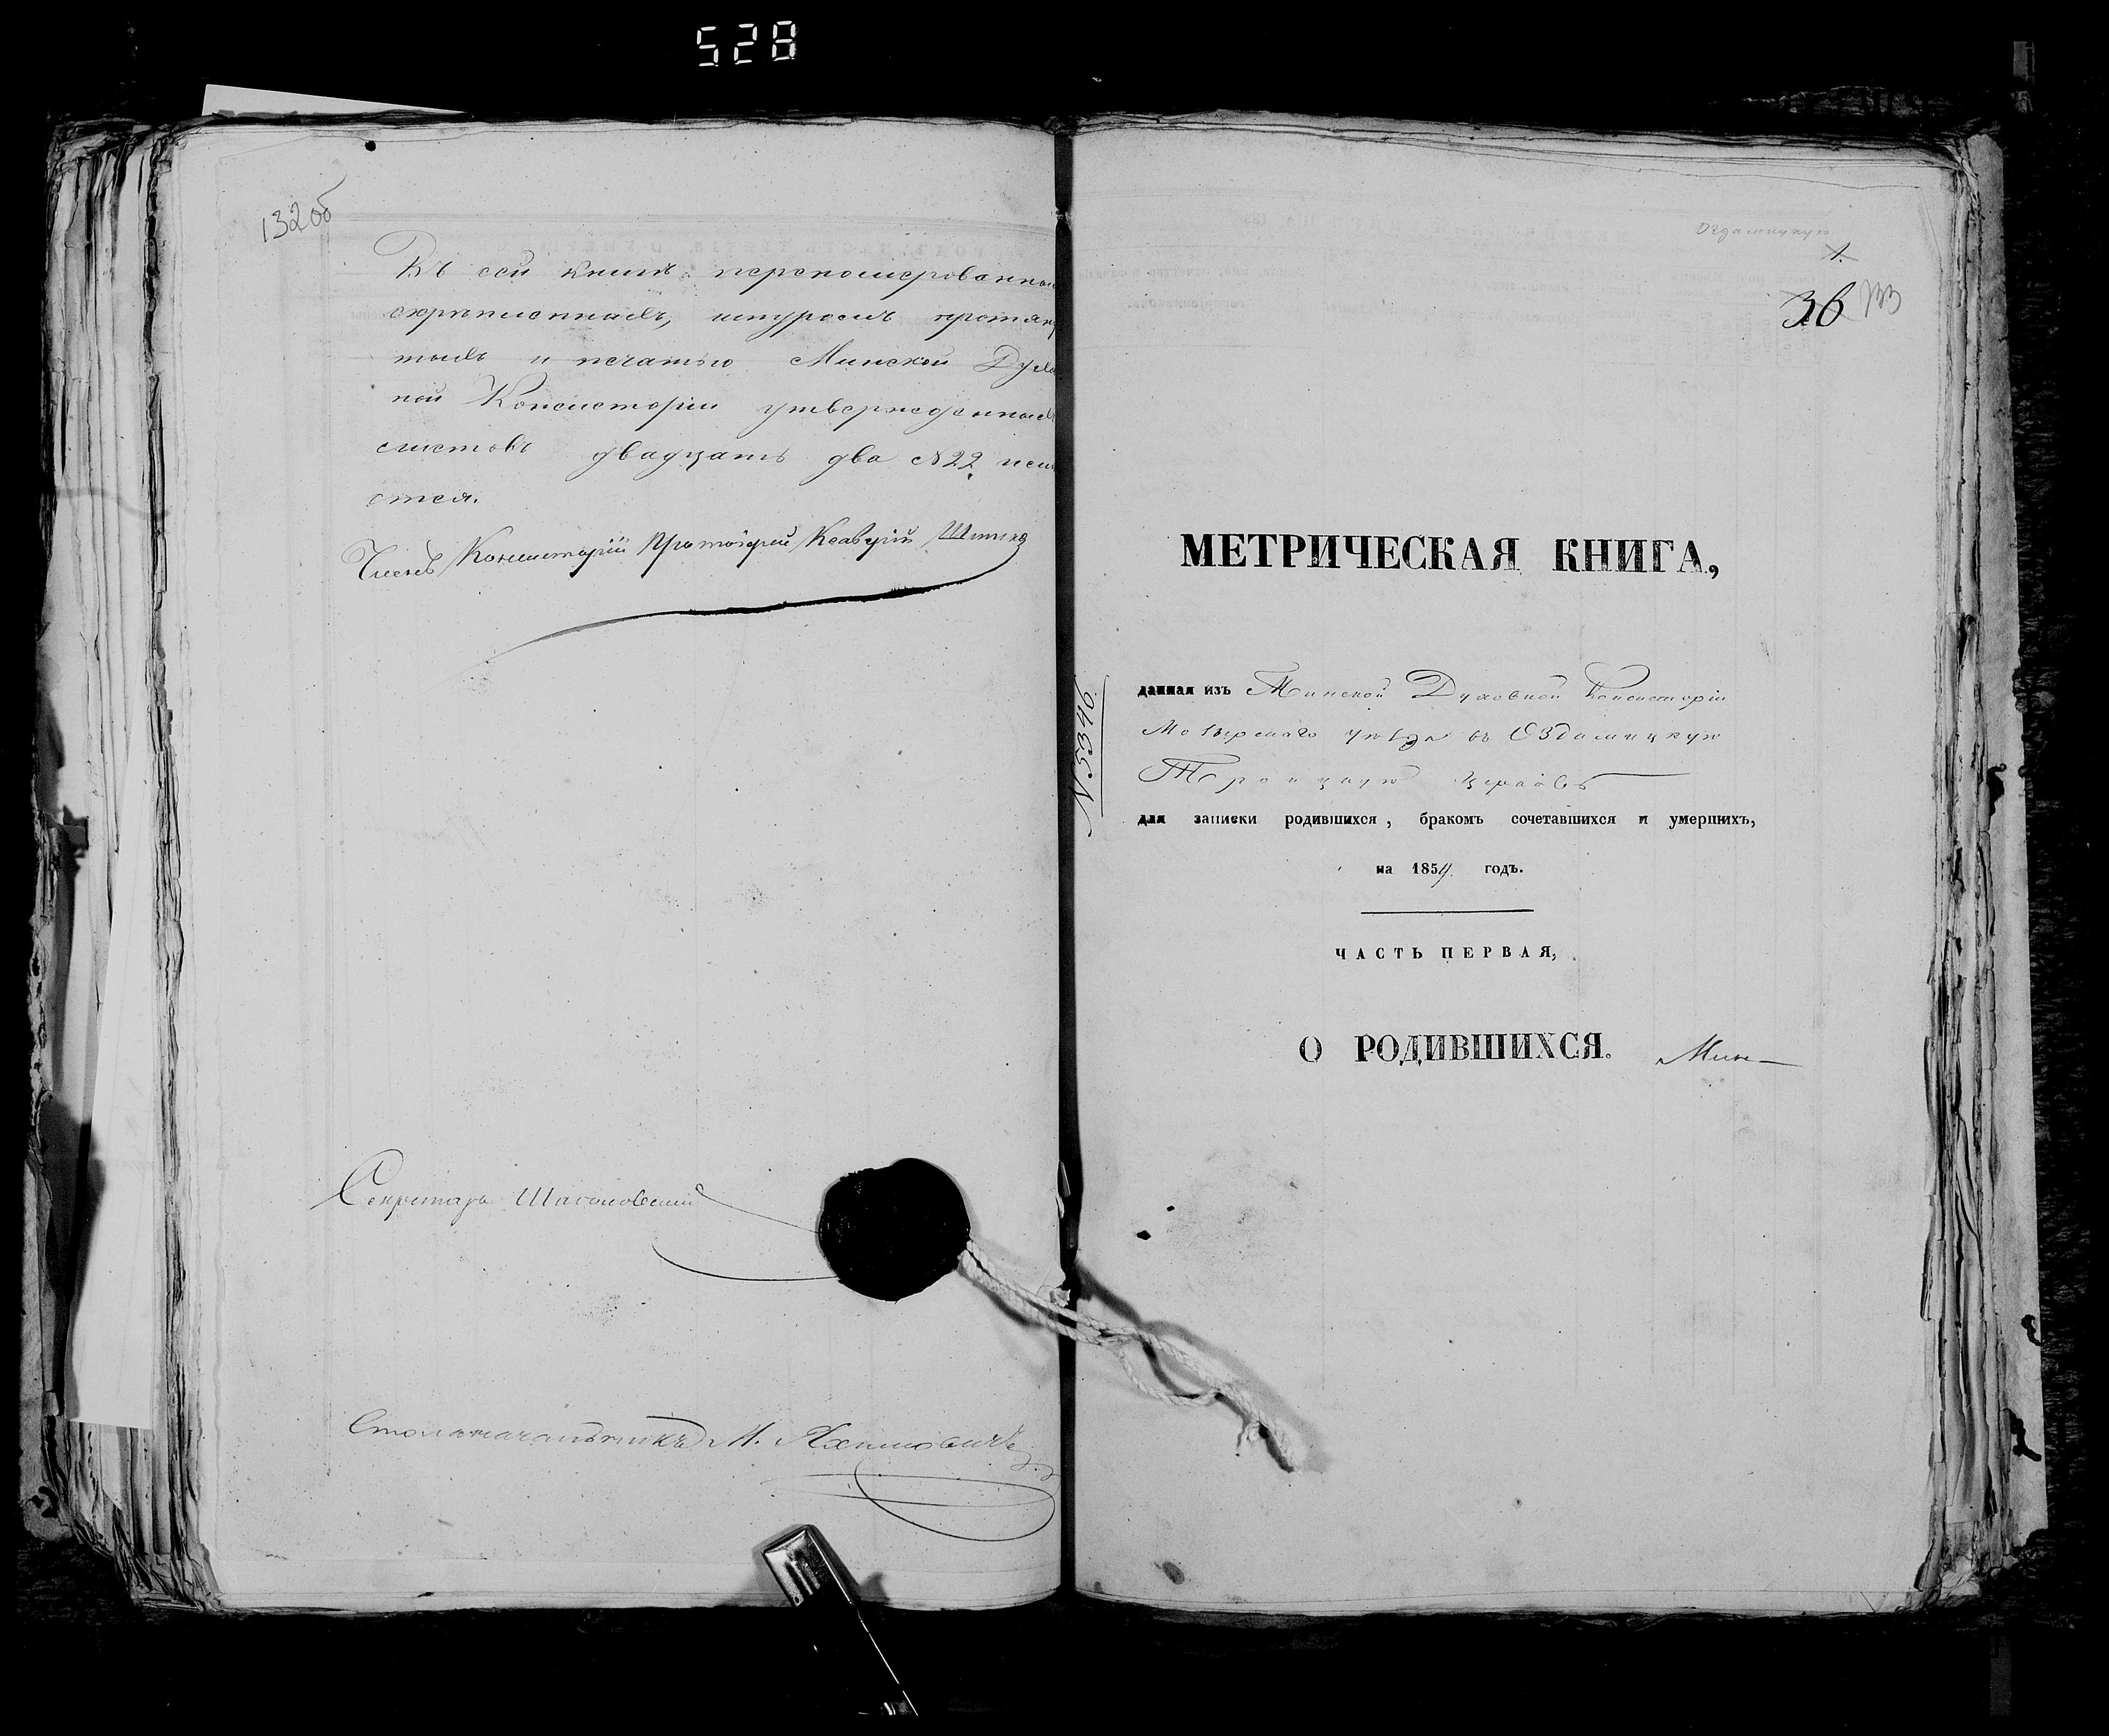 528
132об
Въ сей книгѣ переномерованны
скрѣпленныхъ, шнуромъ протян
тыхъ и печатью Минской Духо
ной Консисторіи утвержденныхъ
листовъ двадцать два №22 
ется.
Членъ Консисторіи Протоіерей
Секретарь
Столоначальникъ М.
Оздамицкую
1.
36 133
МЕТРИЧЕСКАЯ КНИГА,
данная изъ Минской Духовной Консисторіи
Мозырскаго уѣзда въ Оздамицкую
Троицкую церковь
N 5346
для записки родившихся, бракомъ сочетавшихся и умершихъ,
на 1854 годъ.
ЧАСТЬ ПЕРВАЯ,
О РОДИВШИХСЯ. Мин-